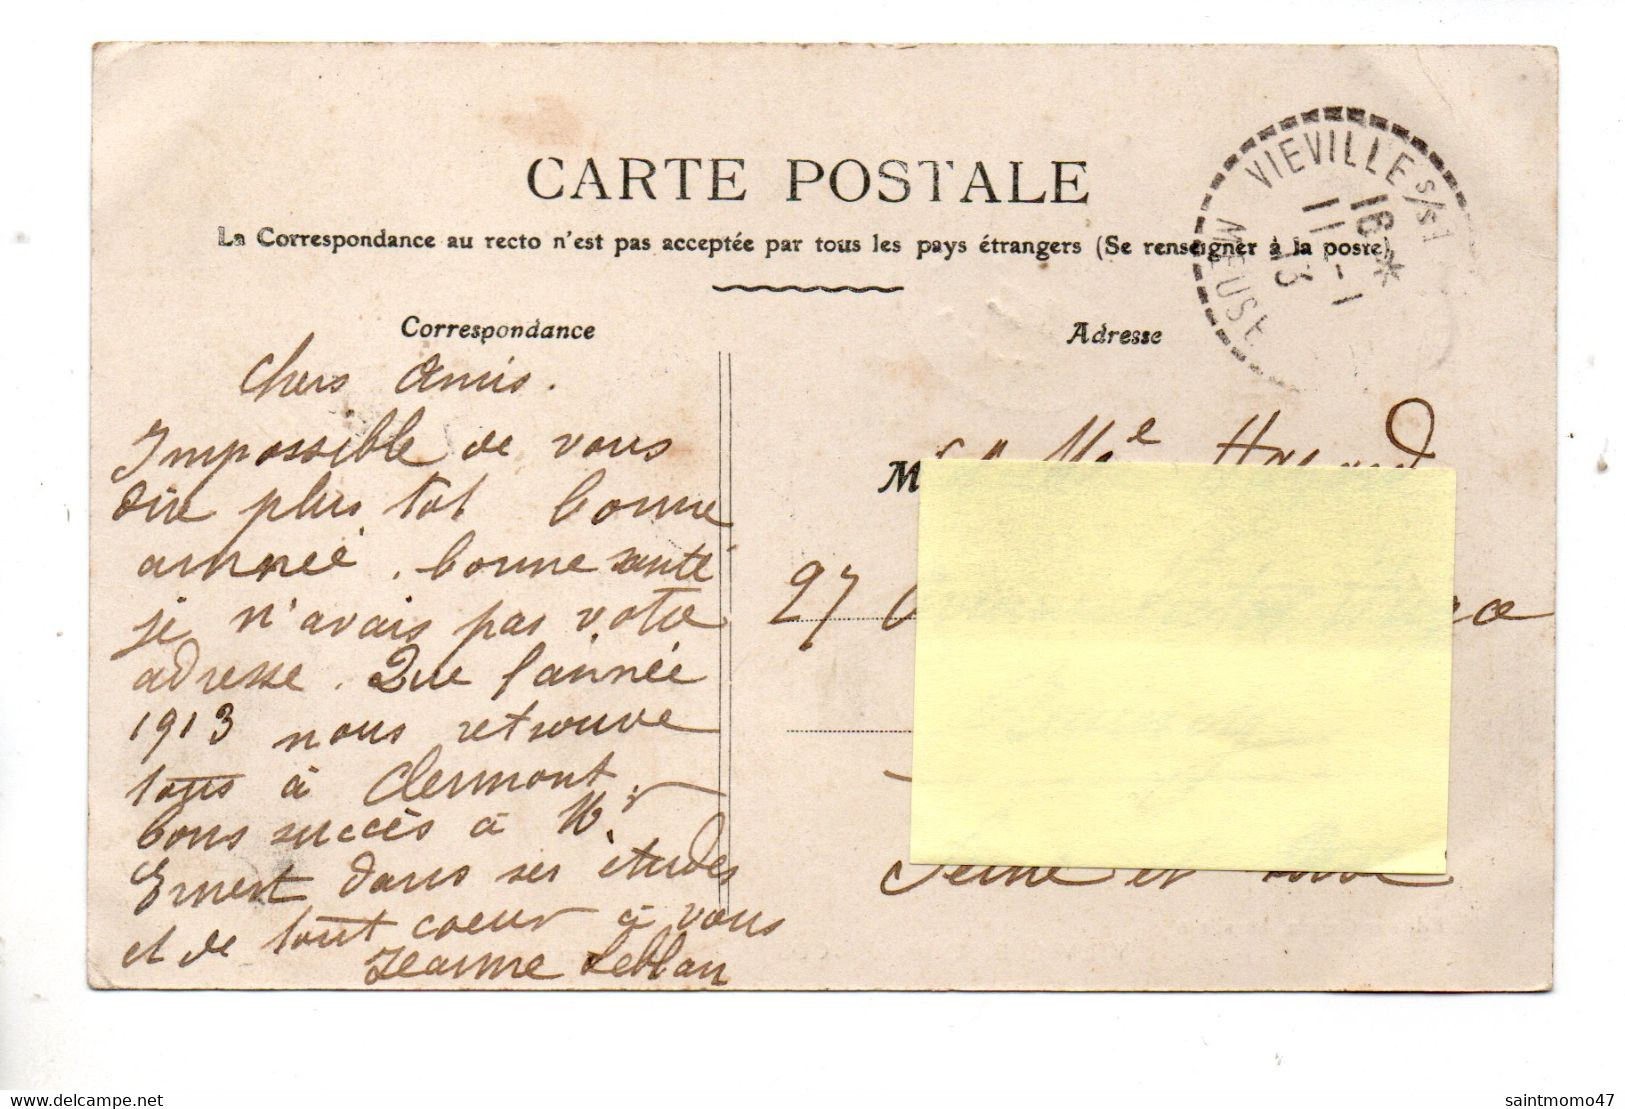 CARTE POSTALE
La Correspondance au recto n'est pas acceptée par tous les pays étrangers (Se renseigner à la poste)
VIEVILLE S/S
16 *
11 - 1
13
MEUSE
Correspondance
Chers Amis.
Impossible de vous
dire plus tot bonne
année. bonne santé
je n'avais pas votre
adresse. Que l'année
1913 nous retrouve
tous à Clermont.
bons succès à Mr
Ernest dans ses études
et de tout coeur à vous
Jeanne Leblan
Adresse
M
Mme
27
Seine et
saintmomo47